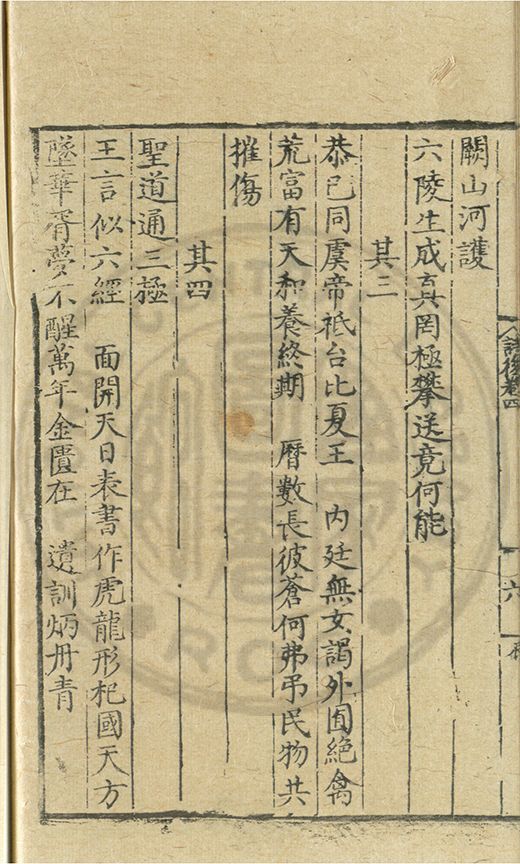 詩後卷四
六
闕山河護
六陵生成真罔極攀送竟何能
其三
恭已同虞帝祗台比夏王　內廷無女謁外囿絕禽
荒富有天和養終期　曆數長彼蒼何弗弔民物共
摧傷
其四
聖道通三極
王言似六經　面開天日表書作虎龍形杞國天方
墜華胥夢不醒萬年金匱在　遺訓炳丹青